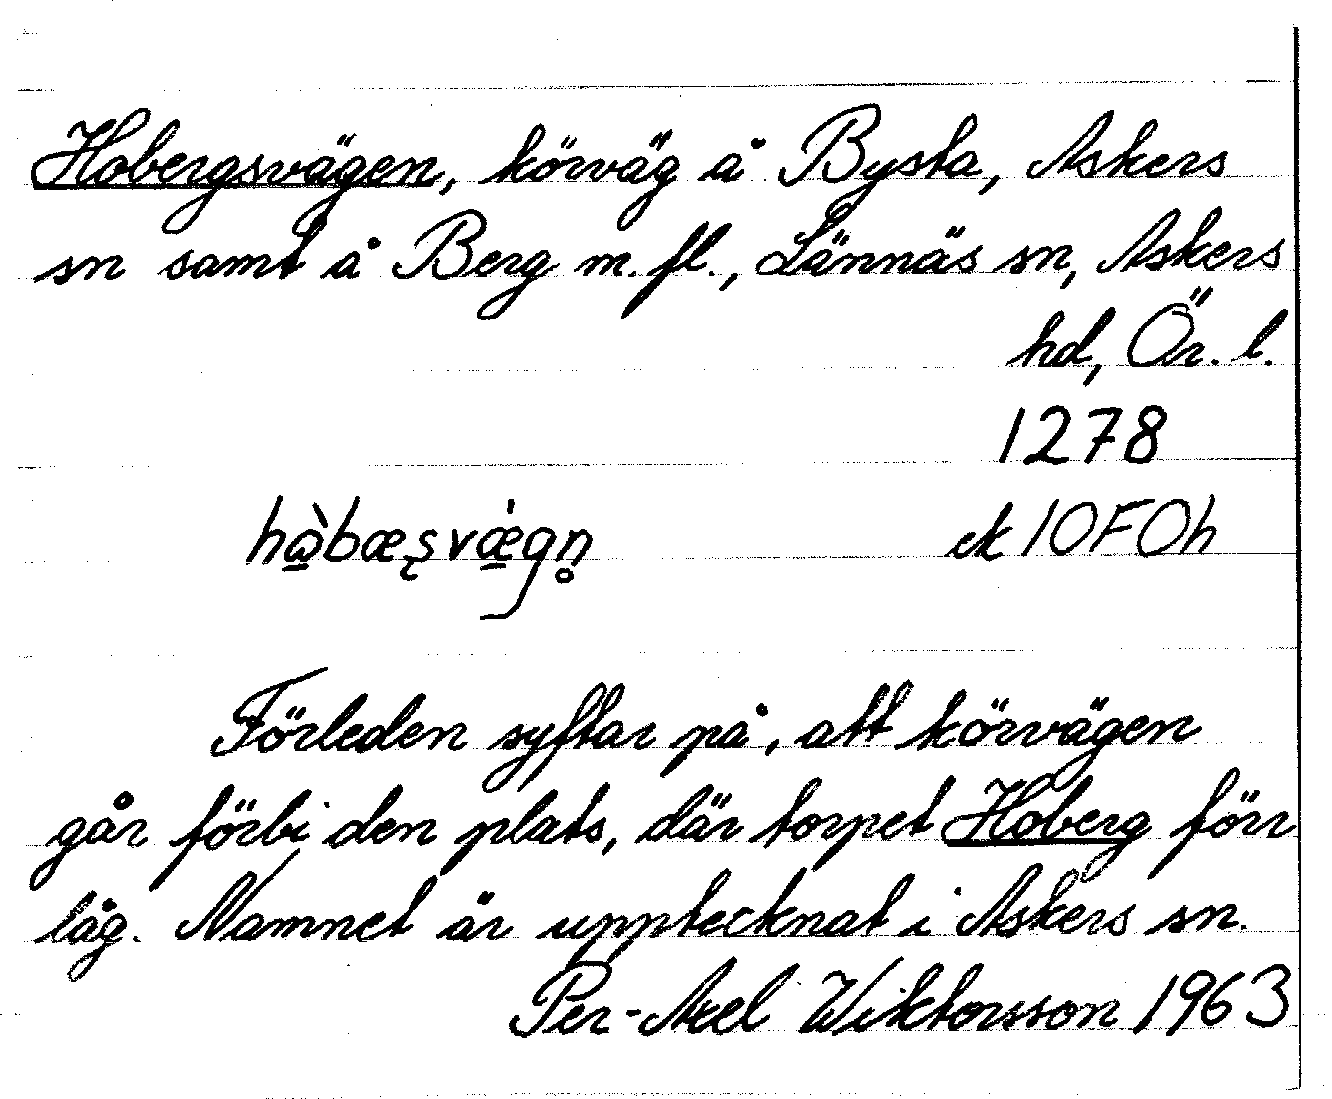 Hobergsvägen, körväg å Bysta, Askers
sn samt å Berg m.fl., Lännäs sn, Askers
hd, Ör. l.
1278
hὼbæşvǽgn̥ ek 10F0h
Förleden syftar på, att körvägen
går förbi den plats, där torpet Hoberg förr
låg. Namnet är upptecknat i Askers sn.
Per-Axel Wiktorsson 1963